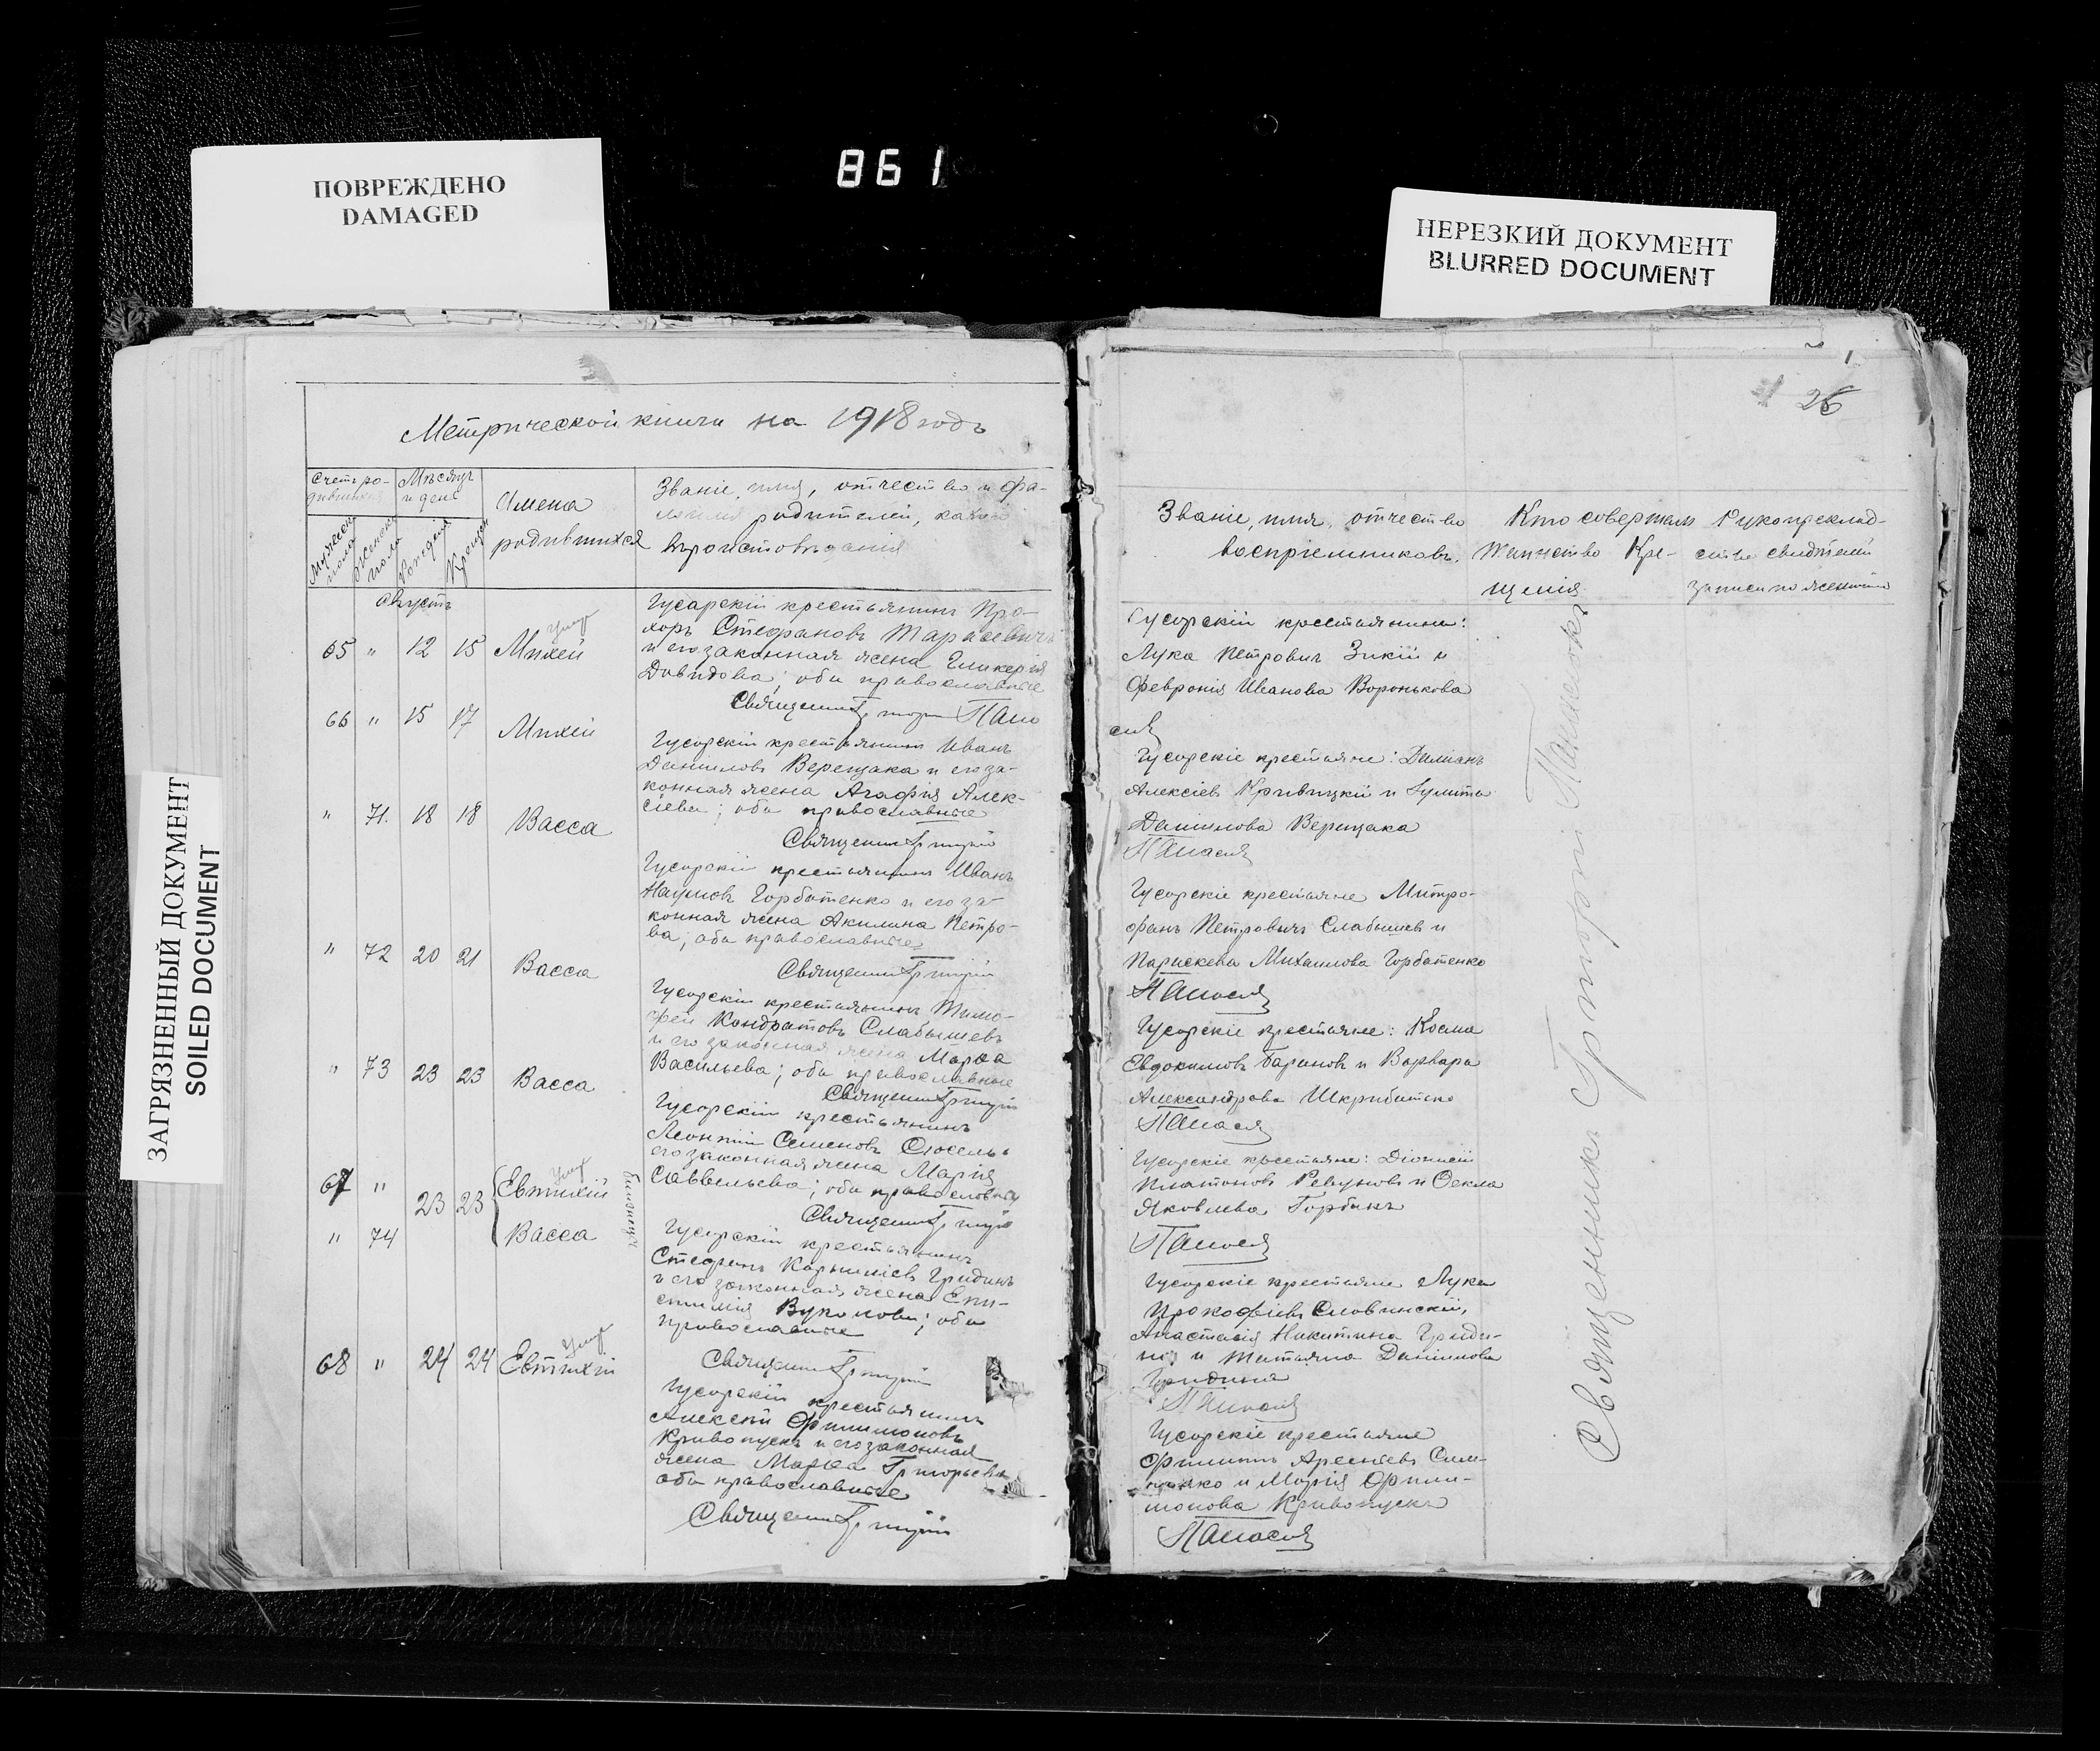 861
ПОВРЕЖДЕНО
DAMAGED
НЕРЕЗКИЙ ДОКУМЕНТ
BLURRED DOCUMENT
ЗАГРЯЗНЕННЫЙ ДОКУМЕНТ
SOILED DOCUMENT
Метрической книги на 1918 годъ
Счетъ ро-
дившихся
Мѣсяцъ
и день
Мужеска
пола
Женска
пола
Рожденія
Крещен
Имена
родившихся
Званіе, имя, отчество и фа-
милія родителей, какой
вѣроисповѣданія
Августъ
65 " 12 15 Михей
умер
Гусарскій крестьянинъ Про-
хоръ Стефановъ
и его законная жена Гликерія
Давидова; оба православные
Священникъ Григорій Пано
66 " 15 17 Михей
Гусарскій крестьянинъ Иванъ
Даниловъ Верещака и его за-
конная жена Агафія Алек-
сіева; оба православные
Священникъ Григорій
" 71 18 18 Васса
Гусарскій крестьянинъ Иванъ
Наумовъ Горбатенко и его за-
конная жена Акилина Петро-
ва; оба православные
Священникъ Григорій
" 72 20 21 Васса
Гусарскій крестьянинъ Тимо-
фей Кондратовъ Слабышевъ
и его законная жена Марфа
Васильева; оба православные
Священникъ Григорій
" 73 23 23 Васса
Гусарскій крестьянинъ
Леонтій Семеновъ
его законная жена Марія
Савельева; оба православные
Священникъ Григорій
67 " 23 23 Евтихій
умер
" 74 Васса
близнецы
Гусарскій крестьянинъ
Стефанъ Гридинъ
и его законная жена Епи-
стимія; оба
православные
Священникъ Григорій
68 " 24 24 Евтихій
умер
Гусарскій крестьянинъ
Алексѣй Филимоновъ
Кривопускъ и его законная
жена Марфа Григорьева
оба православные
Священникъ Григорій
26
Званіе, имя, отчество
воспріемниковъ.
Кто совершалъ
таинство Кре-
щенія
Рукоприклад-
ство свидѣтелей
записи по желанію
Гусарскій крестьянинъ:
Лука Петровичъ Зикій и
Февронія Иванова Воронькова
Гусарскіе крестьяне: Даміанъ
Алексіевъ Кривицкій и Улита
Данилова Верещака
Гусарскіе крестьяне Митро-
фанъ Петровичъ Слабышевъ и
Параскева Михаилова Горбатенко
Гусарскіе крестьяне: Косма
Евдокимовъ Барановъ и Варвара
Александрова
Гусарскіе крестьяне: Діонисій
Платоновъ Ревуновъ и Фекла
Яковлева
Гусарскіе крестьяне Лука
Прокофіевъ Словинскій,
Анастасія Никитина Гриди-
на и Татьяна Данилова
Гридина
Гусарскіе крестьяне
Филиппъ Арсеніевъ
и Марія Фили-
монова Кривопускъ
Священникъ Григорій